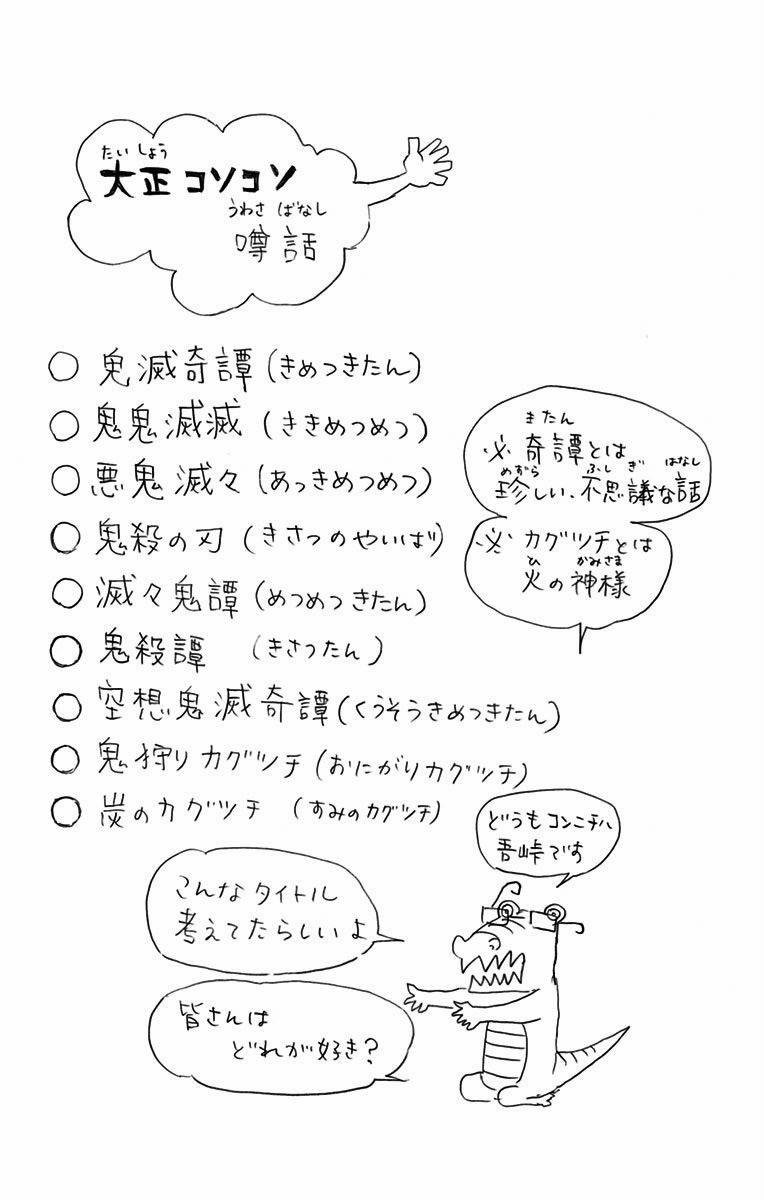 たいしょう
大正コソコソ
うわさ ばなし
噂話
○ 鬼滅奇譚 (きめつきたん)
○ 鬼鬼滅滅 (ききめつめつ)
○ 悪鬼滅々 (あっきめつめつ)
○ 鬼殺の刃 (きさつのやいば)
○ 滅々鬼譚 (めつめつきたん)
○ 鬼殺譚 (きさつたん)
○ 空想鬼滅奇譚 (くうそうきめつきたん)
○ 鬼狩りカグツチ (おにがりカグツチ)
○ 炭のカグツチ (すみのカグツチ)
きたん
※ 奇譚とは
めずら ふしぎ はなし
珍しい、不思議な話
※ カグツチとは
ひ かみさま
火の神様
どうもコンニチハ
吾峠です
こんなタイトル
考えてたらしいよ
皆さんは
どれが好き?